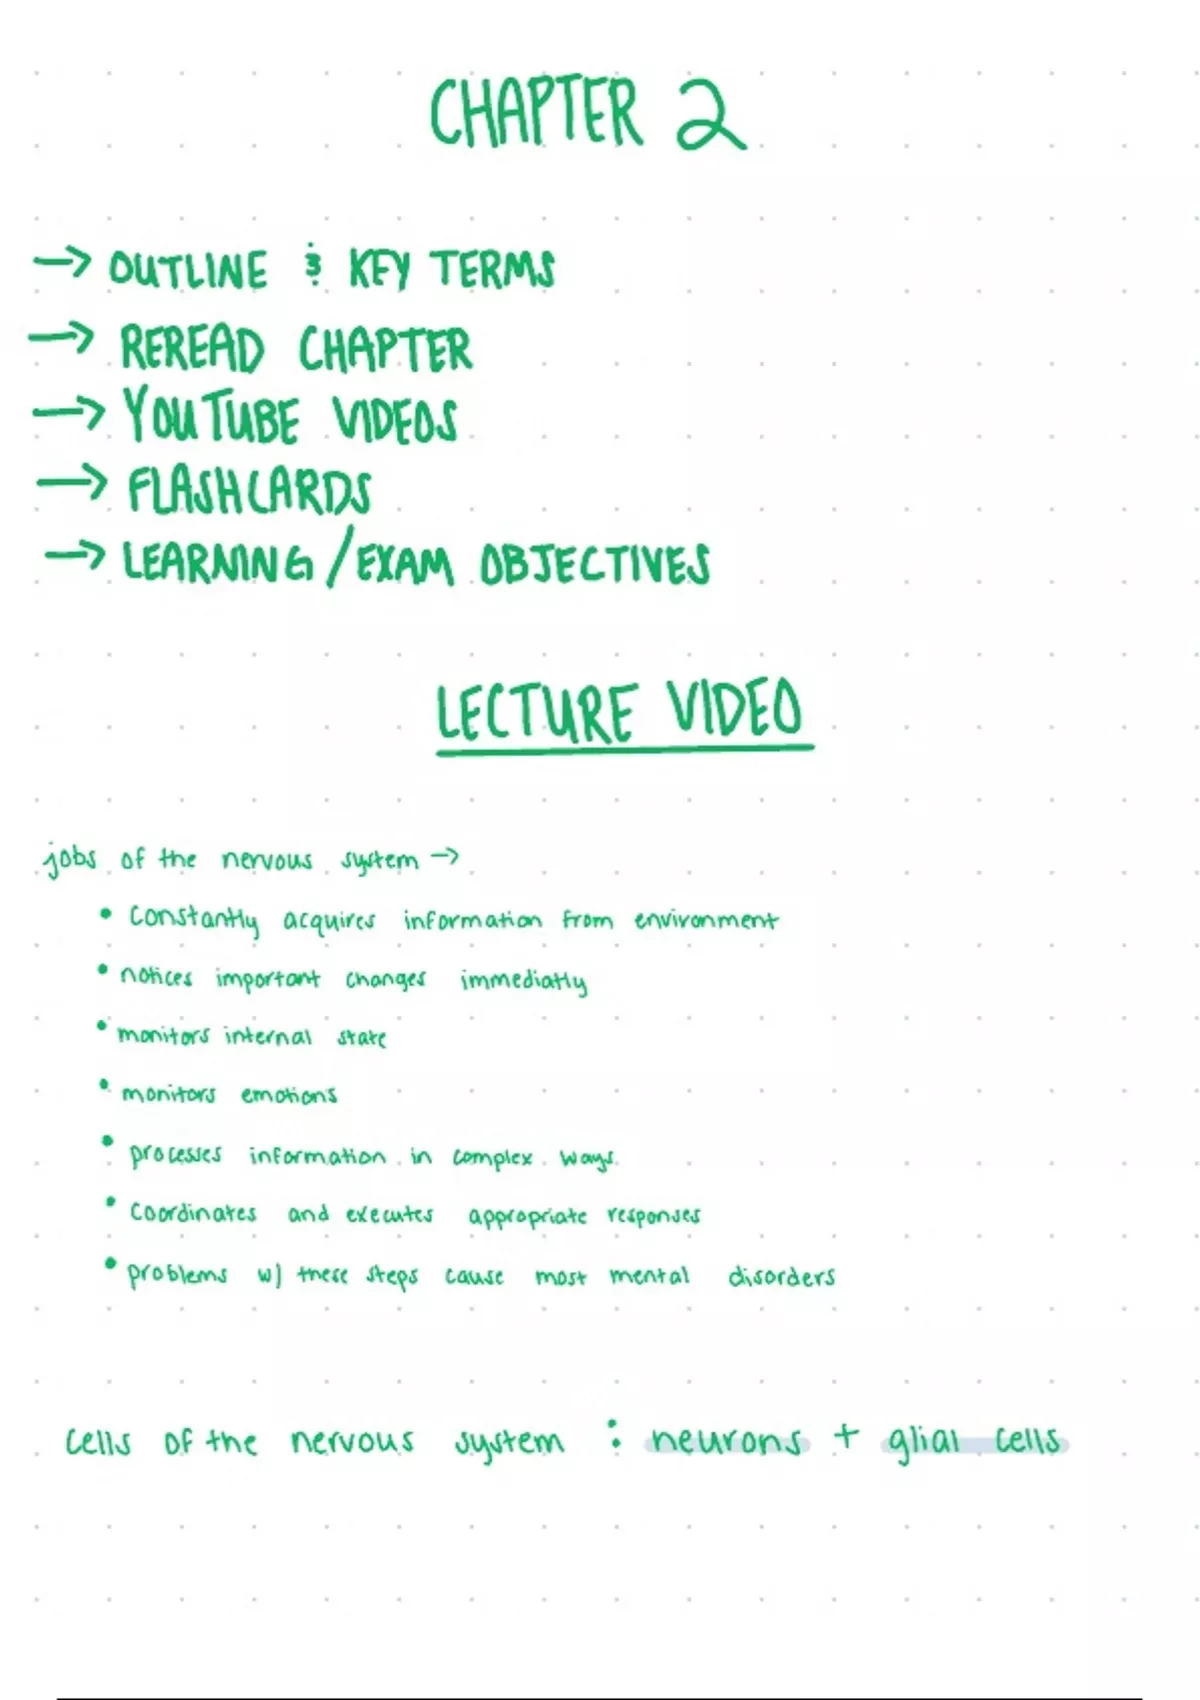 CHAPTER 2
→ OUTLINE & KEY TERMS
→ REREAD CHAPTER
→ YOUTUBE VIDEOS
→ FLASHCARDS
→ LEARNING/EXAM OBJECTIVES
LECTURE VIDEO
jobs of the nervous system →
• constantly acquires information from environment
• notices important changes immediatly
• monitors internal state
• monitors emotions
• processes information in complex ways
• coordinates and executes appropriate responses
• problems w) these steps cause most mental disorders
cells of the nervous system : neurons + glial cells